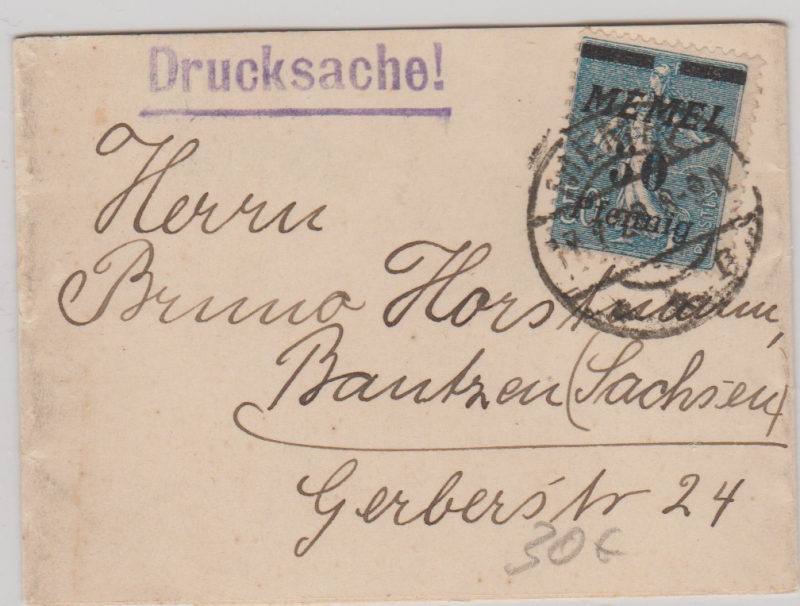 Drucksache!
MEMEL
50
Pfennig
Herrn
Bruno Horstmann,
Bautzen (Sachsen)
Gerberstr 24
30 €